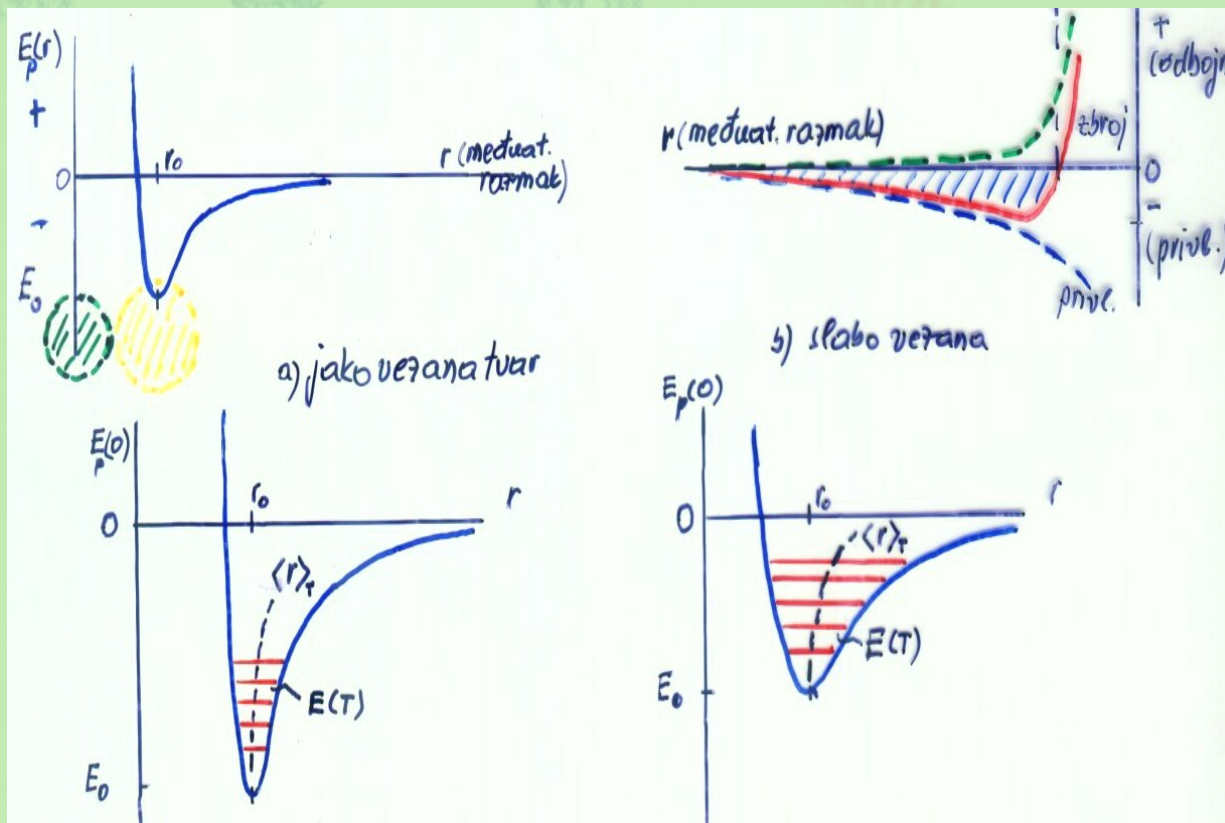 Ep(r)
+
0
-
E₀
r₀
r (međuat.
razmak)
r (međuat. razmak)
+
zbroj
0
-
(privl.)
privl.
a) jako vezana tvar
b) slabo vezana
Ep(0)
0
r₀
r
⟨r⟩T
E(T)
E₀
Ep(0)
0
r₀
r
⟨r⟩T
E(T)
E₀